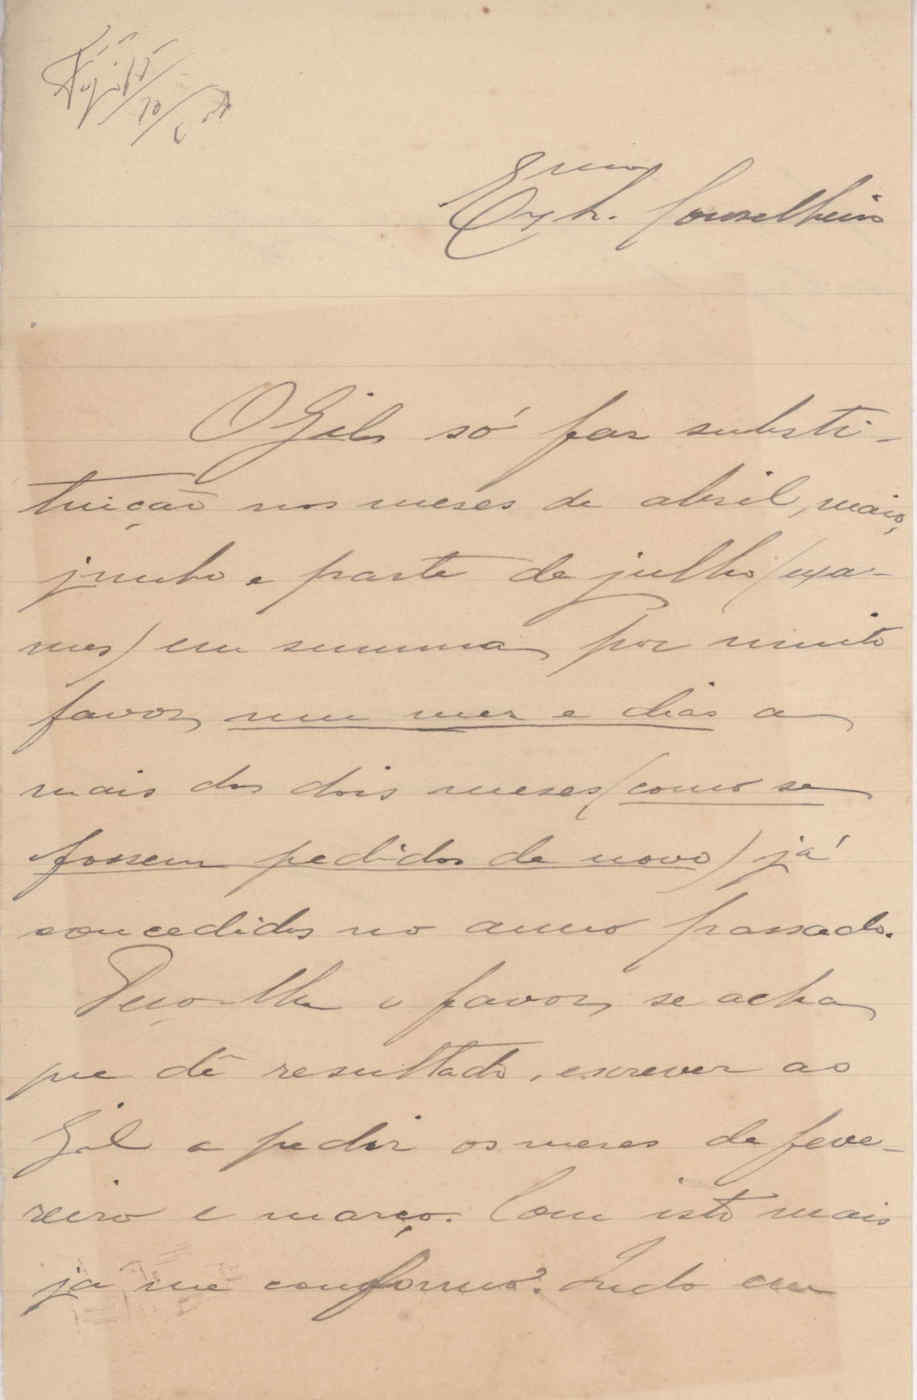 Exmo Conselheiro
O Gil só faz substi-
tuição nos meses de abril, maio,
junho e parte de julho (exa-
mes) em summa por muito
favor, um mez e dias a
mais dos dois meses (como se
fossem pedidos de novo) já
concedidos no anno passado.
Peço-lhe o favor, se acha
que dê resultado, escrever ao
Gil a pedir os meses de feve-
reiro e março. Com isto mais
já me conformo. Indo eu